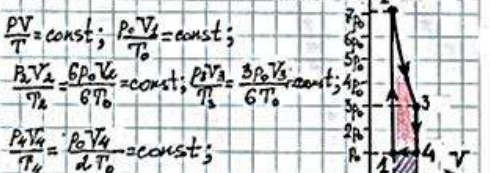 PV/T = const; p₀V₁/T₀ = const;
P₂V₂/T₂ = 6p₀V₂/6T₀ = const; p₃V₃/T₃ = 3p₀V₃/6T₀ = const;
P₄V₄/T₄ = p₀V₄/2T₀ = const;
7p₀
6p₀
5p₀
4p₀
3p₀ 3
2p₀
p₀ 1 4 V